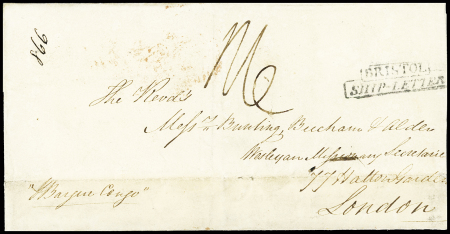 866
BRISTOL
SHIP-LETTER
The Revds
Messrs Bunting, Beecham & Alder
Wesleyan Missionary Secretaries
77 Hatton Garden
London
"Barque Congo"